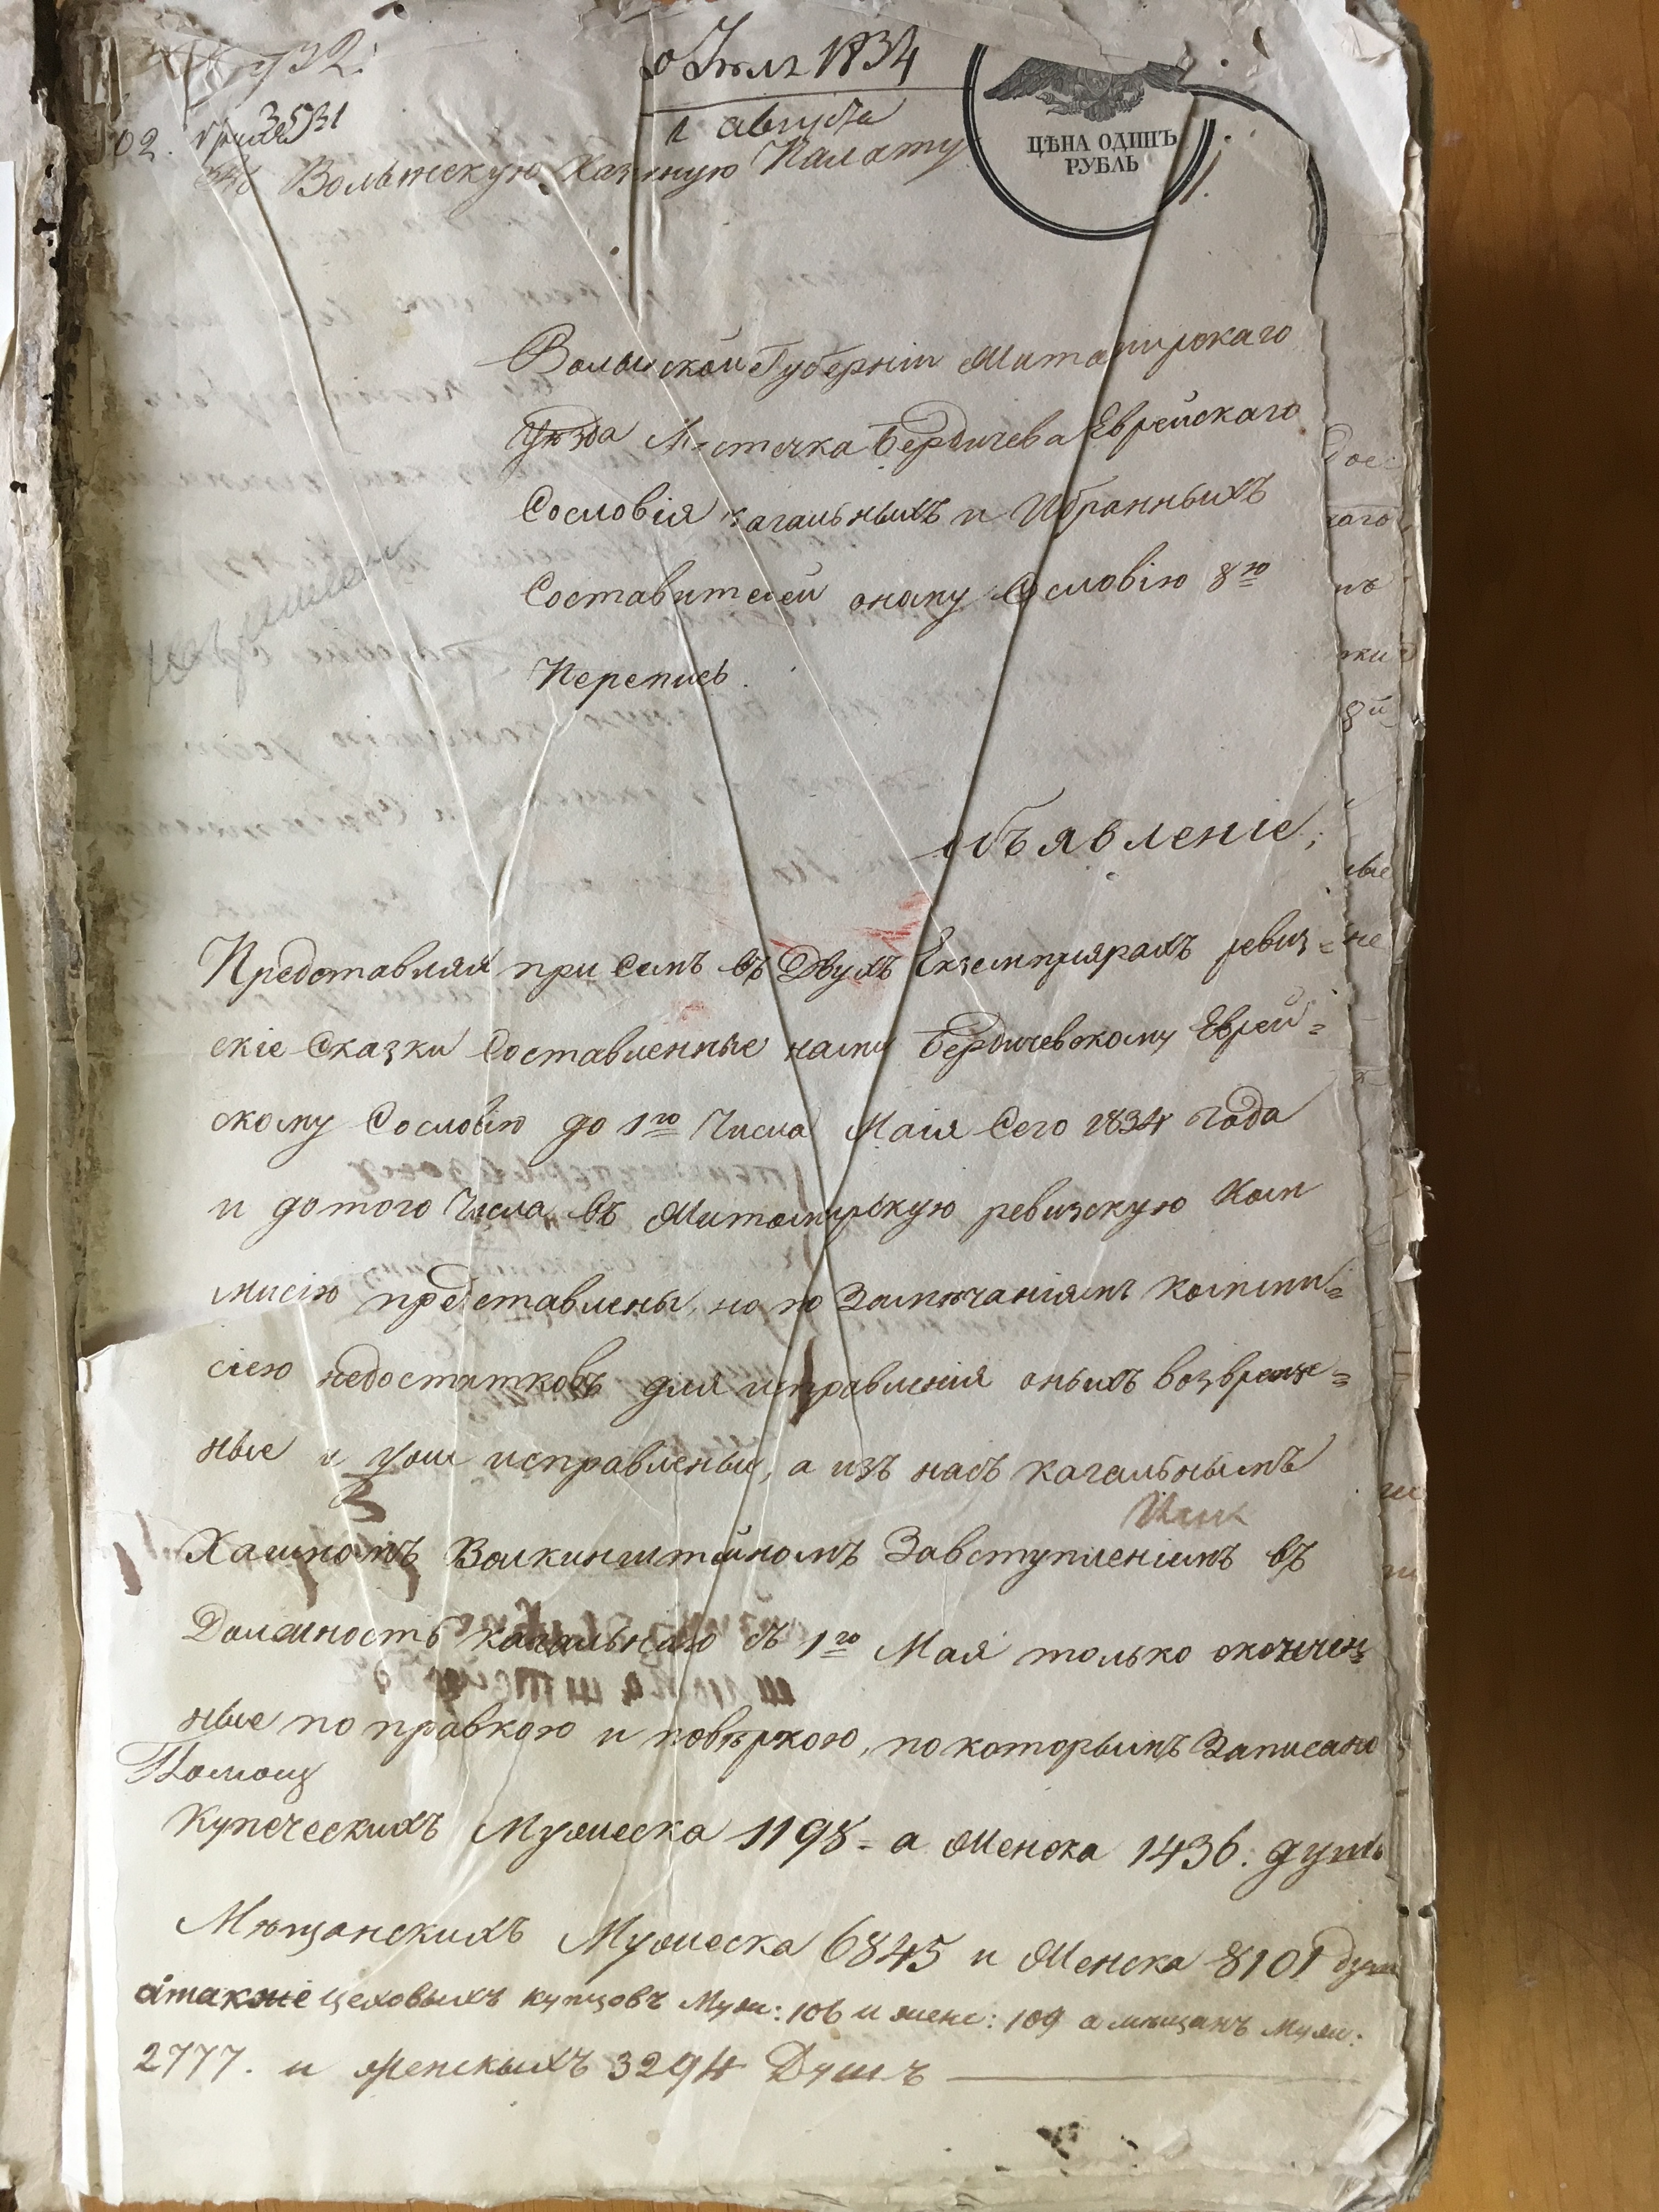 1834
1 августа
3531
Въ Волынскую Казенную Палату
ЦѢНА ОДИНЪ
РУБЛЬ
Волынской Губерніи Житомирскаго
Уѣзда Мѣстечка Бердичева Еврейскаго
Сословія кагальныхъ и Избранныхъ
Составителей оному Сословію 8ю
Перепись.
объявленіе;
Представляя при семъ въ Двухъ Екземплярахъ ревиз=
скіе Сказки Составленные нами Бердичевскому Еврей=
скому Сословію до 1го Числа Маія Сего 1834 года
и до того Числа въ Житомирскую ревизскую Ком
мисію представлены, но по Замѣчаніямъ коммми=
сіею недостатковъ для исправленія оныхъ возвраще=
ные и исправлены, а изъ насъ кагальнымъ
Хаимомъ Волкинштейномъ Завступленіемъ въ
Должность кагальнаго съ 1го Мая только окончен
ные по правкою и повѣркою, по которымъ Записано
Купеческихъ Мужеска 1198 = а Женска 1436. душъ
Мѣщанскихъ Мужеска 6845 и Женска 8101 душъ
атакже цеховыхъ купцовъ Муж: 106 и женс: 109 а мѣщанъ Муж:
2777. и женскихъ 3294 Душъ